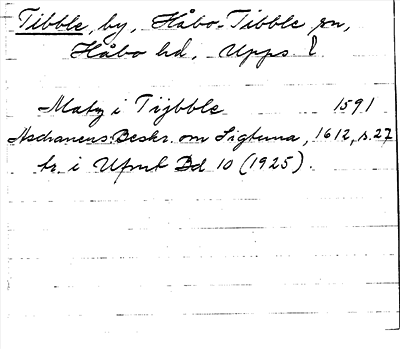 Tibble, by, Håbo-Tibble sn,
Håbo hd, Upps l.
Matz i Tijbble 1591
Aschaneus Beskr. om Sigtuna, 1612, s. 27
tr. i Ufmt Bd 10 (1925).